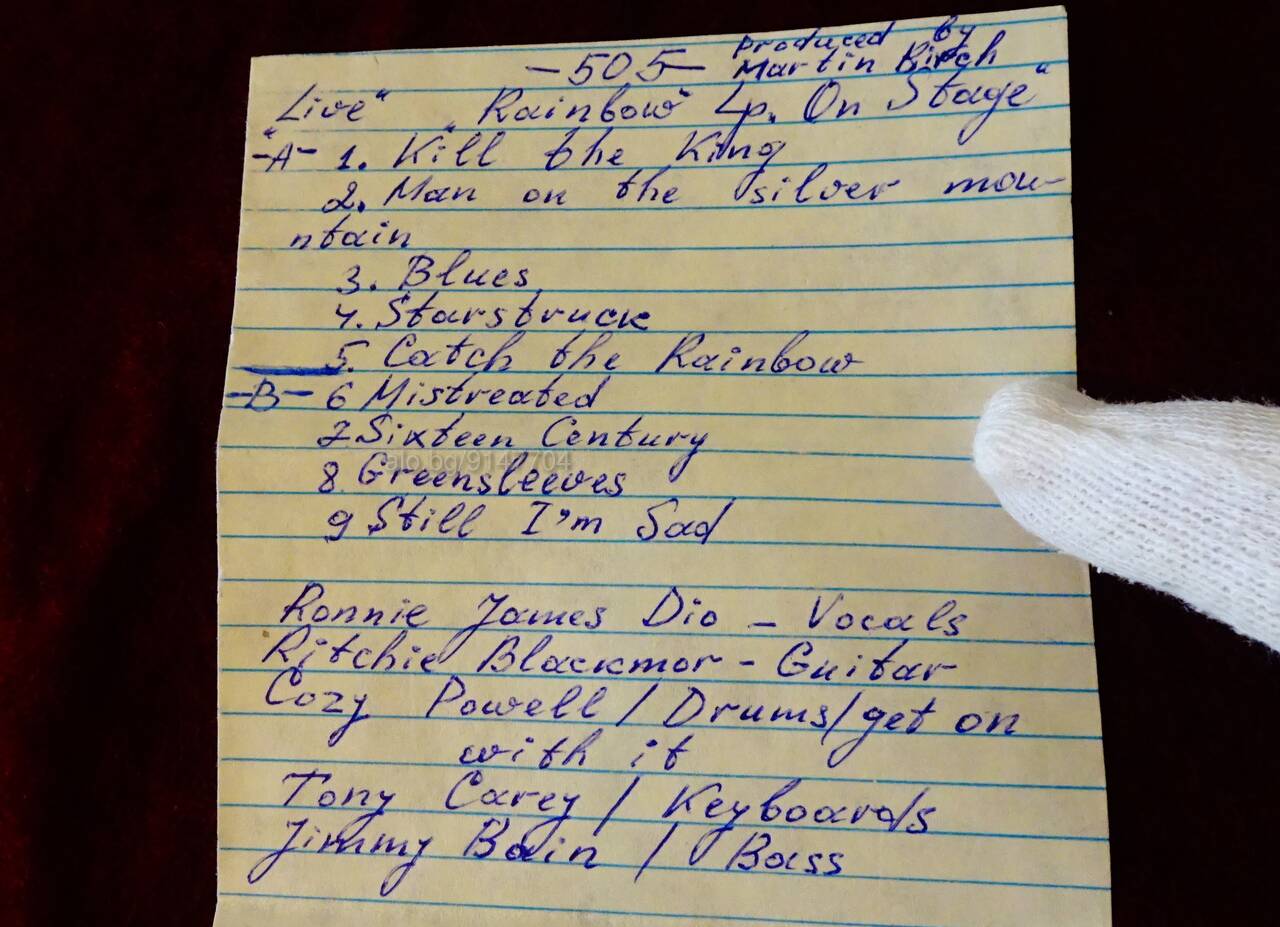 -505- produced by
Martin Birch
„Live“ „Rainbow“ Lp. On Stage“
-A- 1. Kill the King
2. Man on the silver mou-
ntain
3. Blues
4. Starstruck
5. Catch the Rainbow
-B- 6 Mistreated
7 Sixteen Century
alo.bg/9147704
8 Greensleeves
9 Still I'm Sad
Ronnie James Dio - Vocals
Ritchie Blackmor - Guitar
Cozy Powell / Drums / get on
with it
Tony Carey / Keyboards
Jimmy Bain / Bass